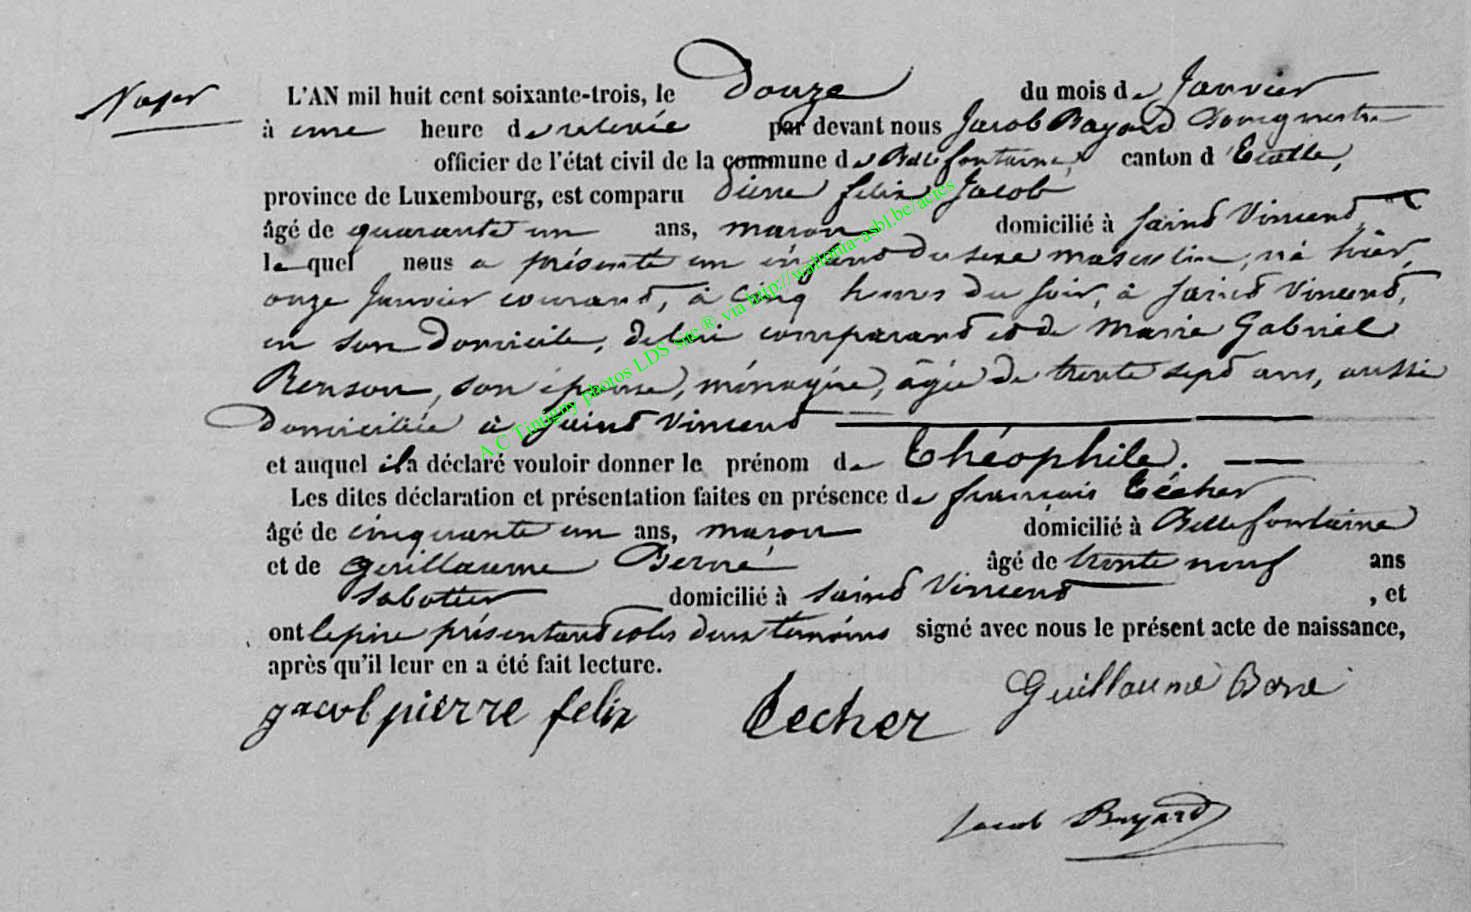 L'AN mil huit cent soixante-trois, le douze du mois de Janvier
à une heure de relevée par devant nous Jacob Bayard Bourgmestre
officier de l'état civil de la commune de Bellefontaine, canton d'Etalle,
province de Luxembourg, est comparu Pierre felix Jacob
âgé de quarante un ans, maçon domicilié à Saint Vincent,
lequel nous a présenté un enfant du sexe masculin, né hier,
onze Janvier courant, à cinq heures du soir, à Saint Vincent,
en son domicile, de lui comparant et de Marie Gabriel
Renson, son épouse, ménagère, âgée de trente sept ans, aussi
domiciliée à Saint Vincent
et auquel il a déclaré vouloir donner le prénom de Théophile.
Les dites déclaration et présentation faites en présence de françois Técher
âgé de cinquante un ans, maçon domicilié à Bellefontaine
et de Guillaume Berné âgé de trente neuf ans
sabotier domicilié à Saint Vincent, et
ont le père présentant et les deux témoins signé avec nous le présent acte de naissance,
après qu'il leur en a été fait lecture.
jacob pierre felix Techer Guillaume Berne
Jacob Bayard
A.C Tintigny photos LDS site ® via http://wallonia-asbl.be/actes